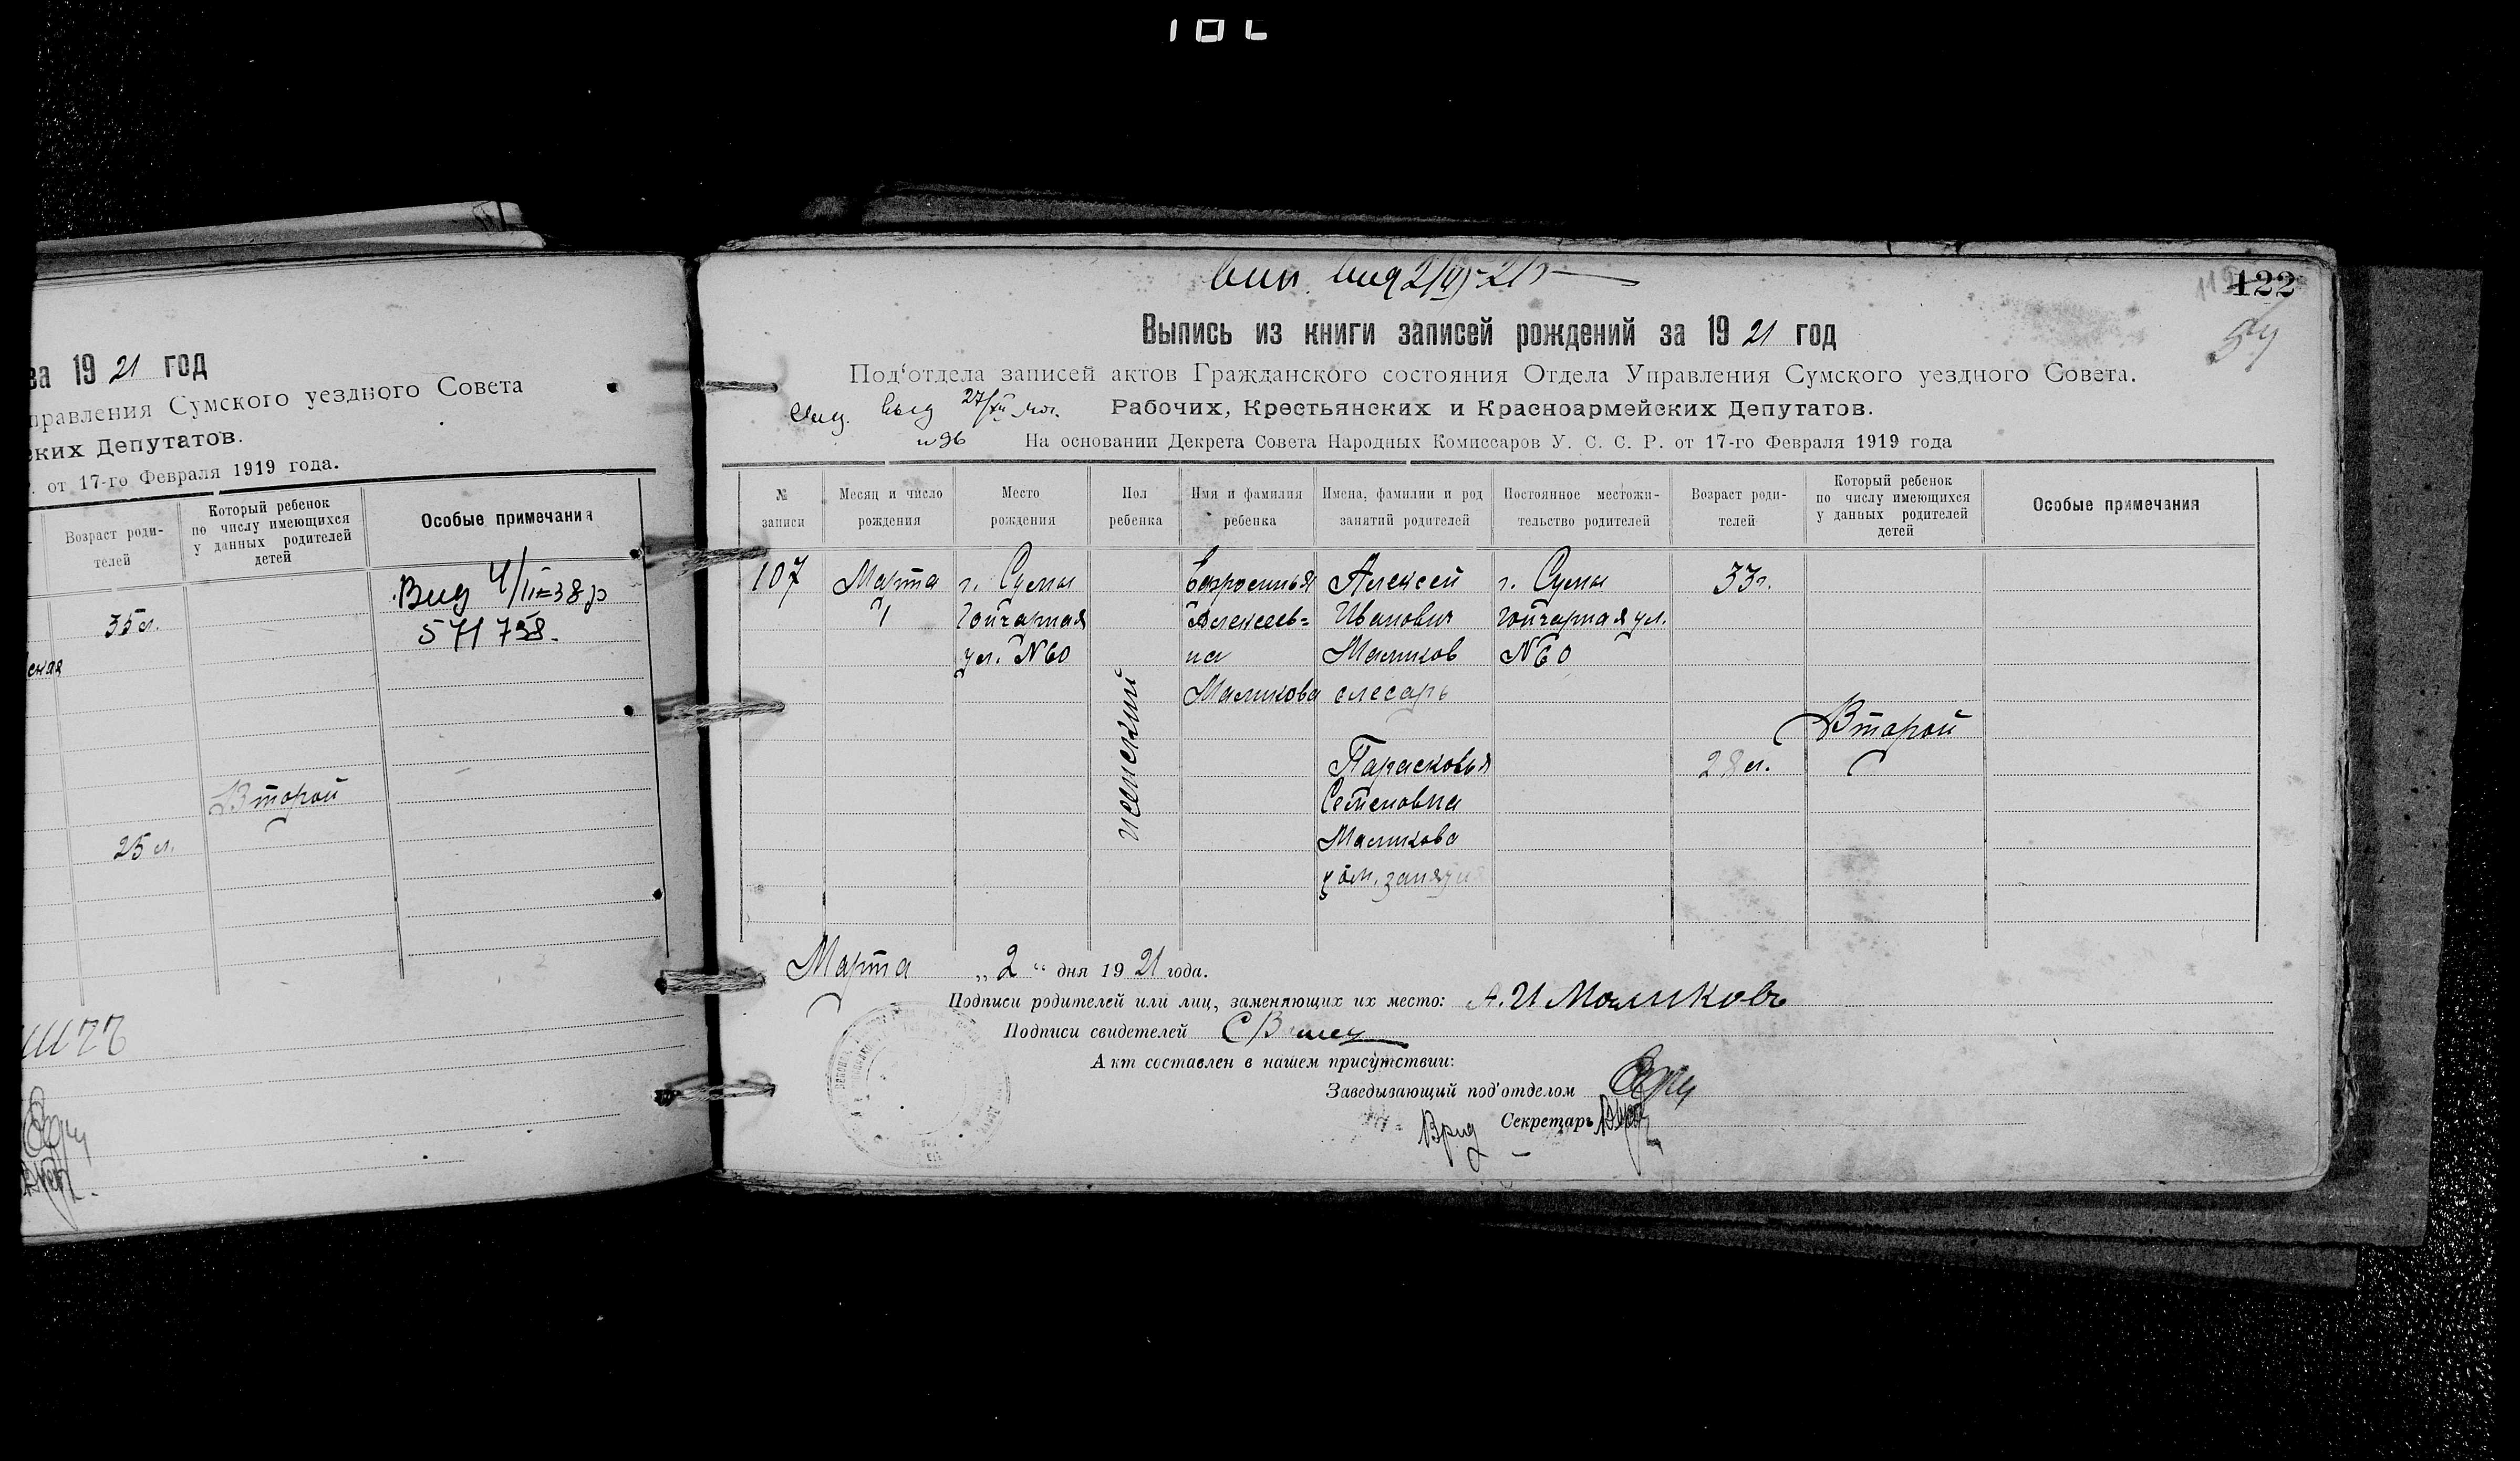 за 19 21 год
правления Сумского уездного Совета
ских Депутатов.
от 17-го Февраля 1919 года.
Возраст роди-
телей
Который ребенок
по числу имеющихся
у данных родителей
детей
Особые примечания
35 л.
571758.
ская
Второй
25 л.
122
54
Выпись из книги записей рождений за 19 21 год
Под'отдела записей актов Гражданского состояния Отдела Управления Сумского уездного Совета.
Рабочих, Крестьянских и Красноармейских Депутатов.
На основании Декрета Совета Народных Комиссаров У. С. С. Р. от 17-го Февраля 1919 года
№
записи
Месяц и число
рождения
Место
рождения
Пол
ребенка
Имя и фамилия
ребенка
Имена, фамилии и род
занятий родителей
Постоянное местожи-
тельство родителей
Возраст роди-
телей
Который ребенок
по числу имеющихся
у данных родителей
детей
Особые примечания
107
Марта
1
г. Сумы
Гончарная
ул. N60
женский
Ефросинья
Алексеев=
на
Маликова
Алексей
Иванович
Маликов
слесарь
Парасковья
Семеновна
Маликова
дом. занятия
г. Сумы
Гончарная ул.
N60
33 г.
28 л.
Второй
Марта „ 2 “ дня 19 21 года.
Подписи родителей или лиц, заменяющих их место: А. И Маликовъ
Подписи свидетелей
Акт составлен в нашем присутствии:
Заведывающий под'отделом
Врид Секретарь